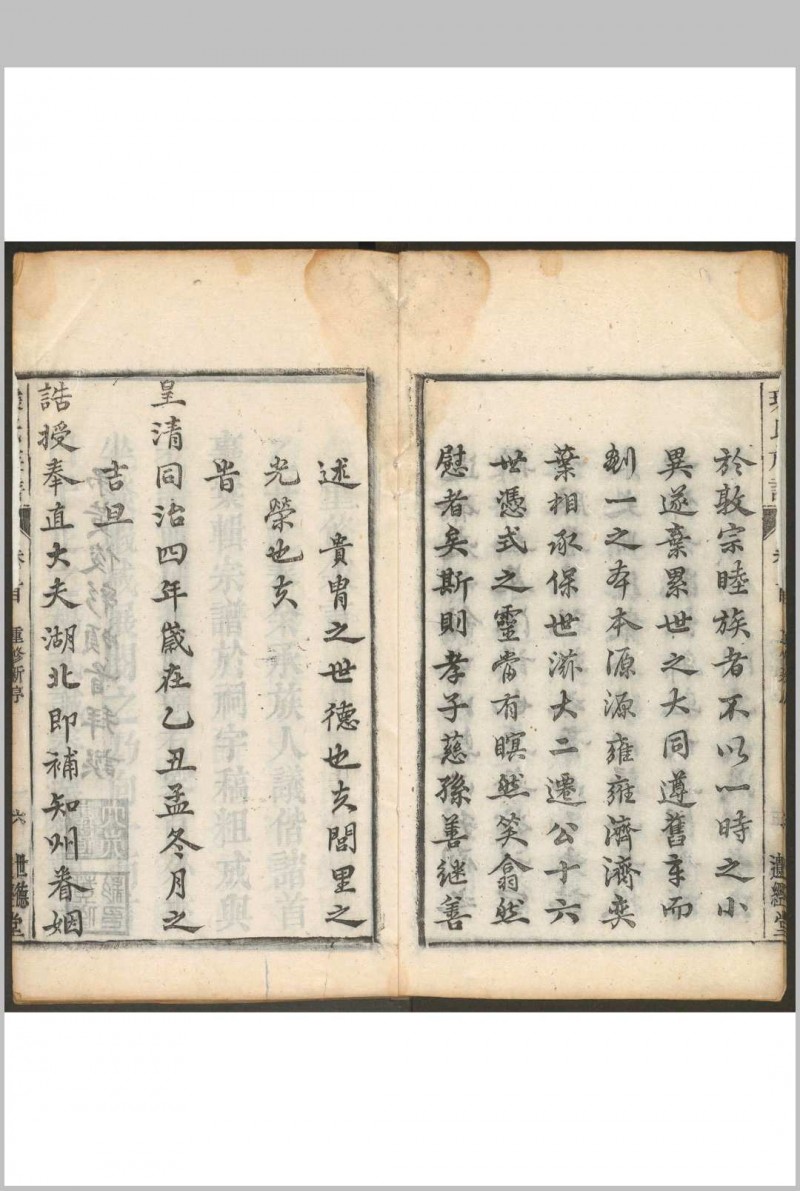 於敦宗睦族者不以一時之小
異遂棄累世之大同遵舊章而
剏一之夲本源源雍雍濟濟奕
葉相承保世滋大二遷公十六
世憑式之靈當有瞑然笑翕然
慰者矣斯則孝子慈孫善继善
述 貴冑之世德也亥閭里之
光榮也亥
旹
皇清同治四年歲在乙丑孟冬月之
吉旦
誥授奉直大夫湖北即補知州眷姻
重修新序
六
世德堂